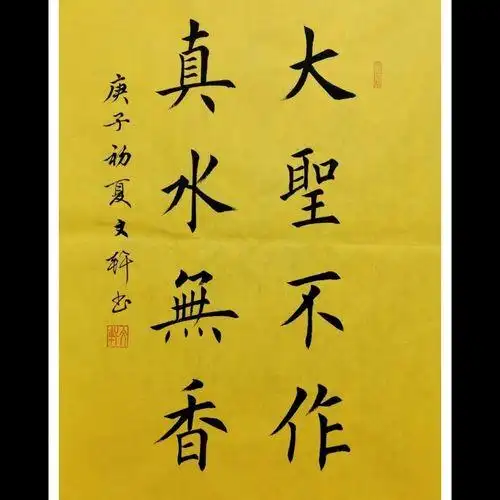 大聖不作
真水無香
庚子初夏文軒书